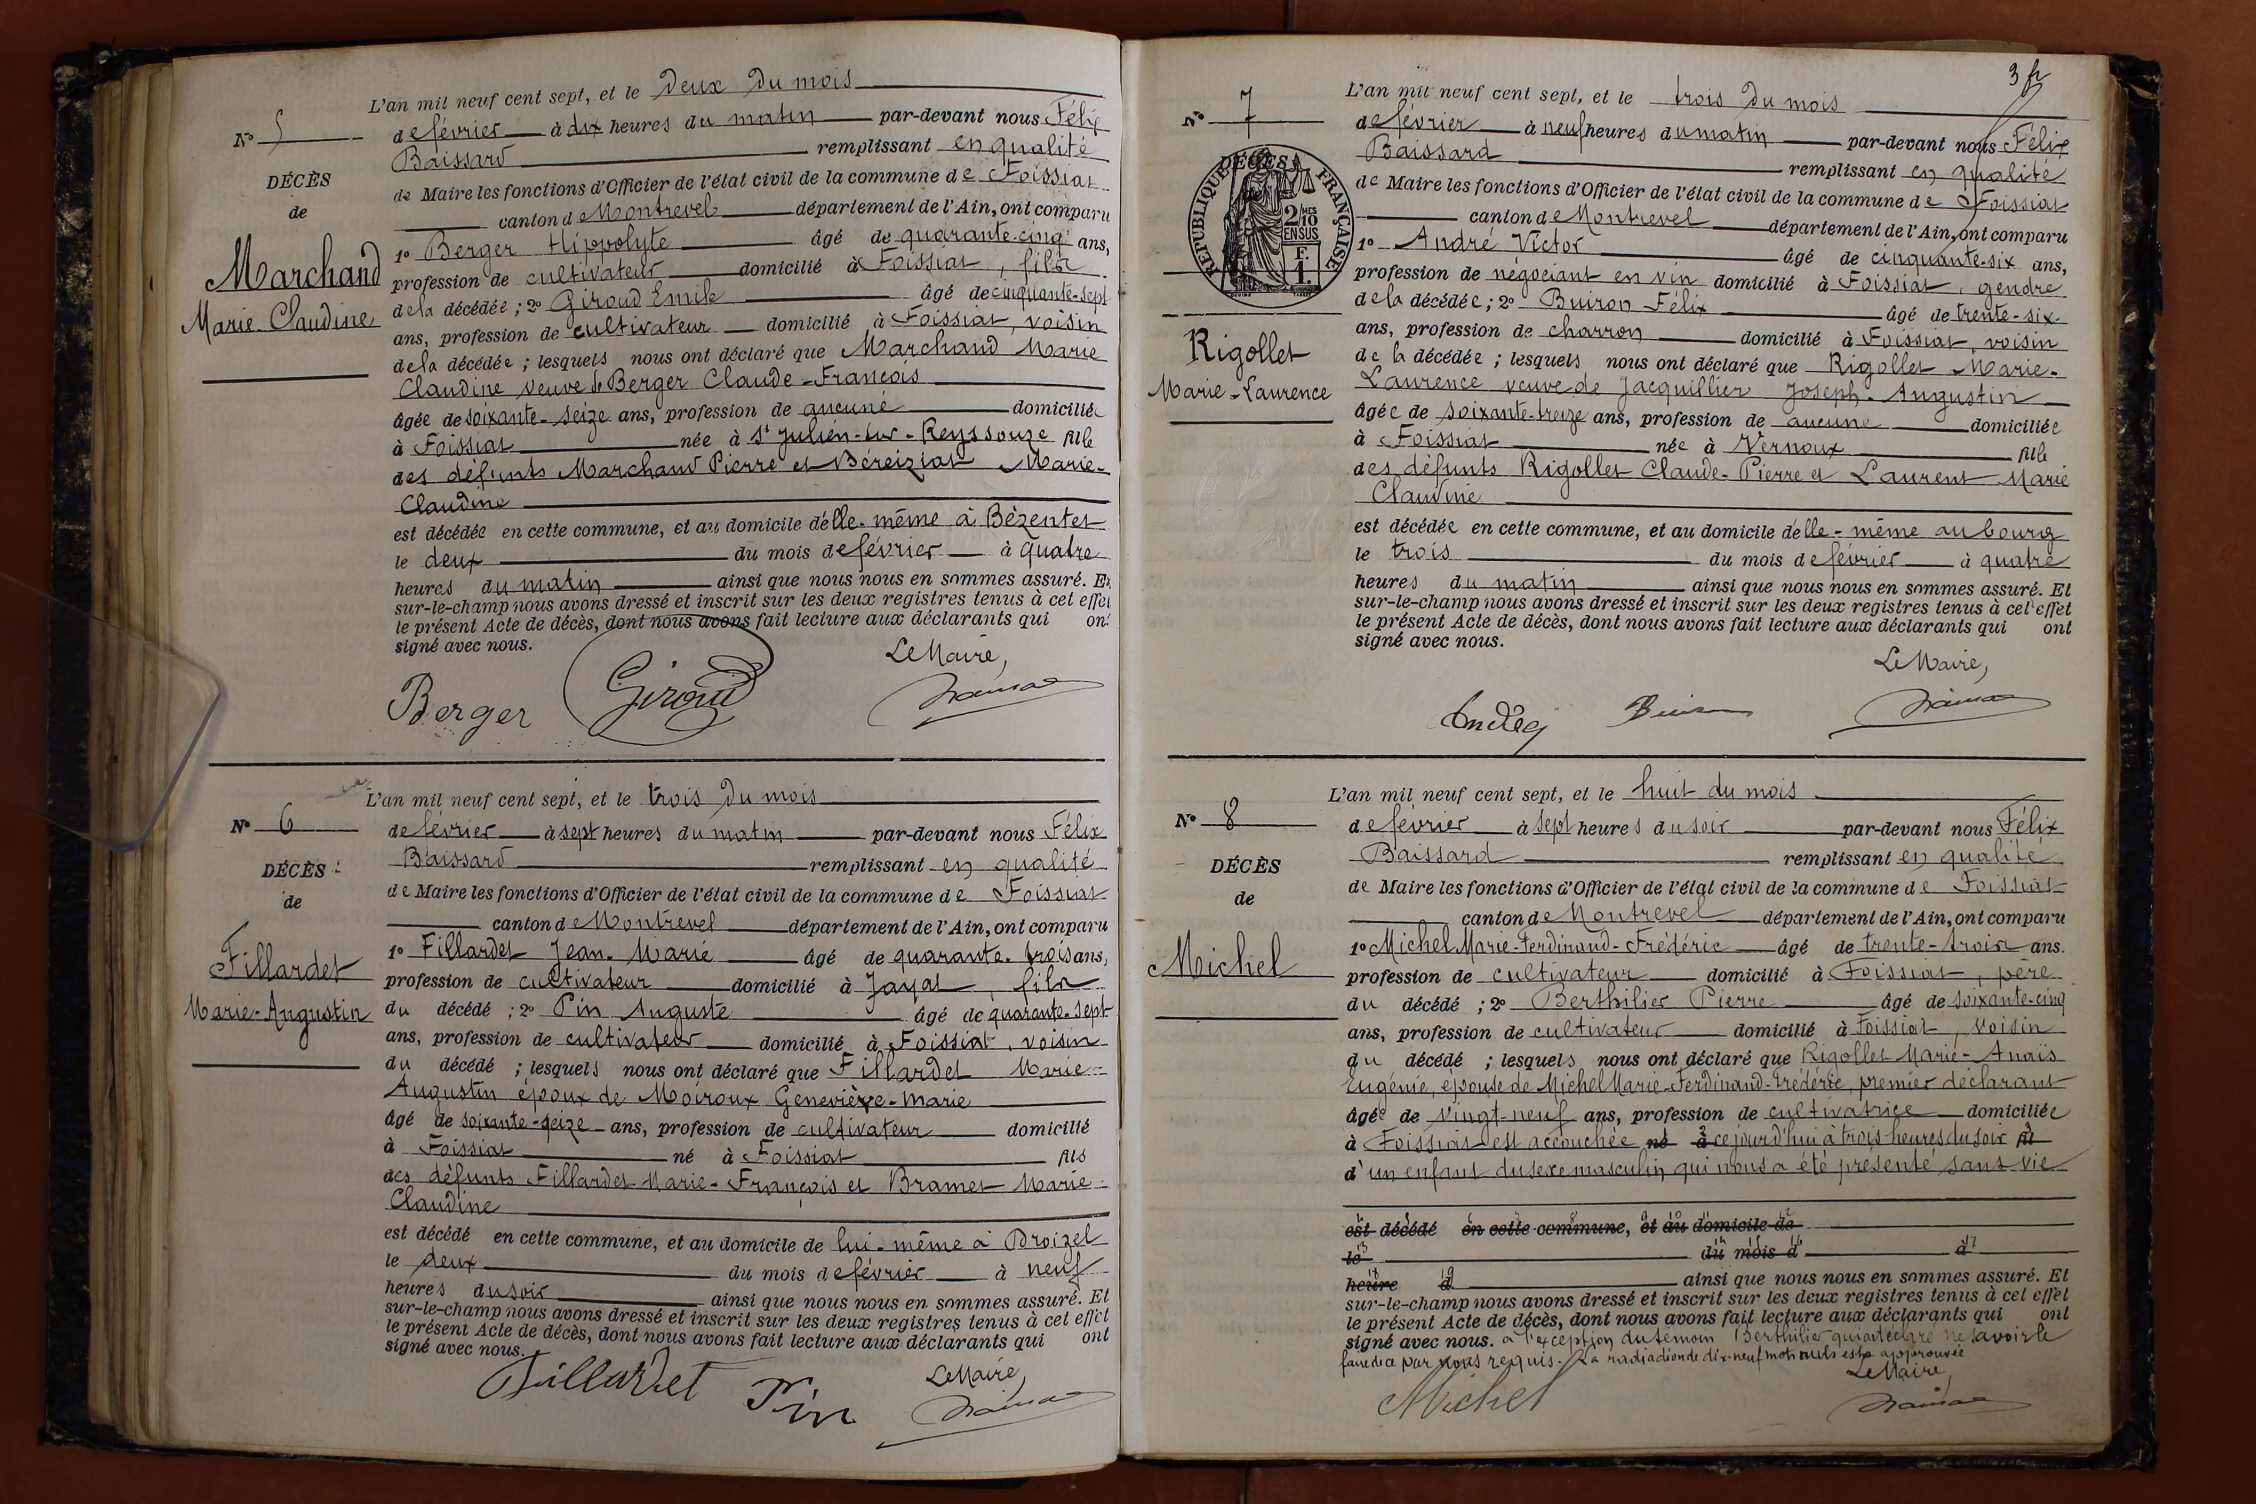 L'an mil neuf cent sept, et le deux du mois
N° 5
de février à dix heures du matin par-devant nous Félix
Baissard remplissant en qualité
DÉCÈS
de Maire les fonctions d'Officier de l'état civil de la commune de Foissiat
de
canton de Montrevel département de l'Ain, ont comparu
1° Berger Hippolyte âgé de quarante-cinq ans,
Marchand
profession de cultivateur domicilié à Foissiat, fils
Marie-Claudine
de la décédée ; 2° Giroud Emile âgé de cinquante-sept
ans, profession de cultivateur domicilié à Foissiat, voisin
de la décédée ; lesquels nous ont déclaré que Marchand Marie
Claudine veuve de Berger Claude-François
âgée de soixante-seize ans, profession de aucune domiciliée
à Foissiat née à St Julien-sur-Reyssouze fille
des défunts Marchand Pierre et Béreiziat Marie-
Claudine
est décédée en cette commune, et au domicile d'elle-même à Bézentet
le deux du mois de février à quatre
heures du matin ainsi que nous nous en sommes assuré. Et
sur-le-champ nous avons dressé et inscrit sur les deux registres tenus à cet effet
le présent Acte de décès, dont nous avons fait lecture aux déclarants qui ont
signé avec nous.
Le Maire,
Berger Giroud
L'an mil neuf cent sept, et le trois du mois
N° 6
de février à sept heures du matin par-devant nous Félix
Baissard remplissant en qualité
DÉCÈS
de Maire les fonctions d'Officier de l'état civil de la commune de Foissiat
de
canton de Montrevel département de l'Ain, ont comparu
1° Fillardet Jean-Marie âgé de quarante-trois ans,
Fillardet
profession de cultivateur domicilié à Jayat, fils
Marie-Augustin
du décédé ; 2° Pin Auguste âgé de quarante-sept
ans, profession de cultivateur domicilié à Foissiat, voisin
du décédé ; lesquels nous ont déclaré que Fillardet Marie-
Augustin époux de Moiroux Geneviève-Marie
âgé de soixante-seize ans, profession de cultivateur domicilié
à Foissiat né à Foissiat fils
des défunts Fillardet Marie-François et Bramet Marie-
Claudine
est décédé en cette commune, et au domicile de lui-même à Broizel
le deux du mois de février à neuf
heures du soir ainsi que nous nous en sommes assuré. Et
sur-le-champ nous avons dressé et inscrit sur les deux registres tenus à cet effet
le présent Acte de décès, dont nous avons fait lecture aux déclarants qui ont
signé avec nous.
Le Maire,
Fillardet Pin
3
L'an mil neuf cent sept, et le trois du mois
N° 7
de février à neuf heures du matin par-devant nous Félix
Baissard remplissant en qualité
DÉCÈS
RÉPUBLIQUE FRANÇAISE
2/10 MES
EN SUS
F.
1.
de Maire les fonctions d'Officier de l'état civil de la commune de Foissiat
canton de Montrevel département de l'Ain, ont comparu
1° André Victor âgé de cinquante-six ans,
profession de négociant en vin domicilié à Foissiat, gendre
de la décédée ; 2° Buiron Félix âgé de trente-six
ans, profession de charron domicilié à Foissiat, voisin
Rigollet
Marie-Laurence
de la décédée ; lesquels nous ont déclaré que Rigollet Marie-
Laurence veuve de Jacquillier Joseph-Augustin
âgée de soixante-treize ans, profession de aucune domiciliée
à Foissiat née à Vernoux fille
des défunts Rigollet Claude-Pierre et Laurent Marie
Claudine
est décédée en cette commune, et au domicile d'elle-même au bourg
le trois du mois de février à quatre
heures du matin ainsi que nous nous en sommes assuré. Et
sur-le-champ nous avons dressé et inscrit sur les deux registres tenus à cet effet
le présent Acte de décès, dont nous avons fait lecture aux déclarants qui ont
signé avec nous.
Le Maire,
L'an mil neuf cent sept, et le huit du mois
N° 8
de février à sept heures du soir par-devant nous Félix
Baissard remplissant en qualité
DÉCÈS
de Maire les fonctions d'Officier de l'état civil de la commune de Foissiat
de
canton de Montrevel département de l'Ain, ont comparu
Michel
1° Michel Marie-Ferdinand-Frédéric âgé de trente-trois ans.
profession de cultivateur domicilié à Foissiat, père
du décédé ; 2° Berthilier Pierre âgé de soixante-cinq
ans, profession de cultivateur domicilié à Foissiat, voisin
du décédé ; lesquels nous ont déclaré que Rigollet Marie-Anaïs
Eugénie, épouse de Michel Marie-Ferdinand-Frédéric, premier déclarant
âgée de vingt-neuf ans, profession de cultivatrice domiciliée
à Foissiat est accouchée né à ce jourd'hui à trois heures du soir fil
d'un enfant du sexe masculin qui nous a été présenté sans vie
est décédé en cette commune, et au domicile de
le du mois d à
heure d ainsi que nous nous en sommes assuré. Et
sur-le-champ nous avons dressé et inscrit sur les deux registres tenus à cet effet
le présent Acte de décès, dont nous avons fait lecture aux déclarants qui ont
signé avec nous. à l'exception du témoin Berthilier qui a déclaré ne savoir le
faire de ce par nous requis. La radiation de dix-neuf mots nuls est approuvée
Le Maire,
Michel